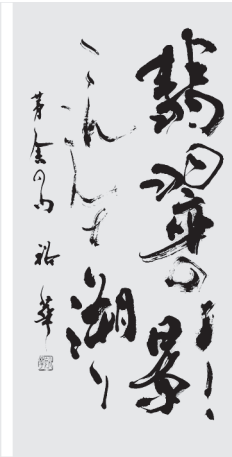 翡翠の影
こんこんと溯り
茅舎の句 裕華